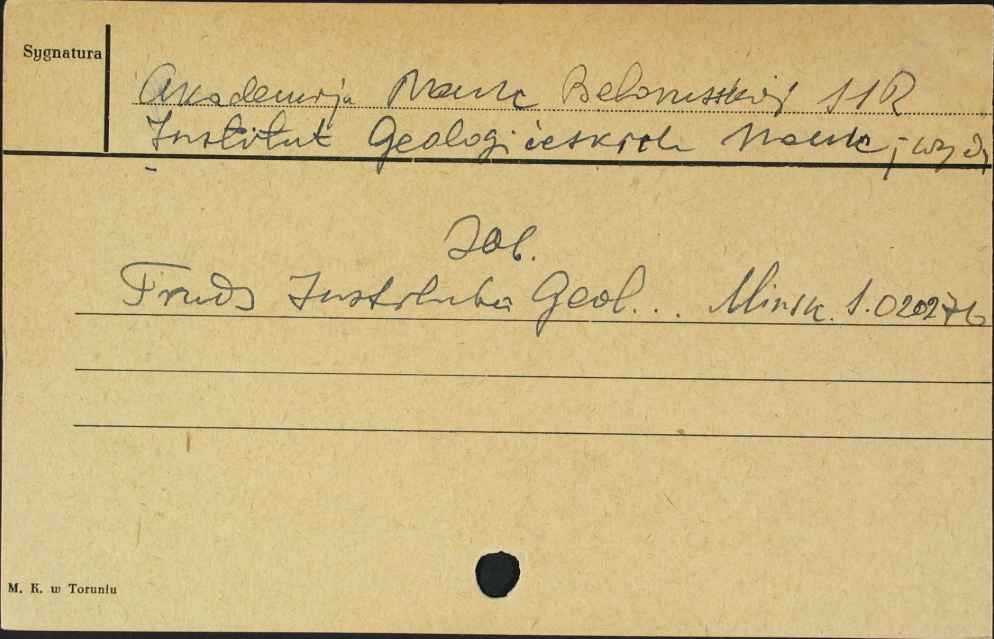 Sygnatura
Akademija Nauk Belorusskoj SSR
Institut Geologičeskich Nauk ; wyd.
zob.
Trudy Instituta Geol... Minsk. S.020276
M. K. w Toruniu